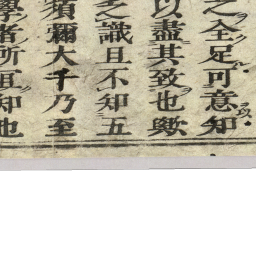 之全足可意知
以盡其致也歟
之識且不知五
須彌大千乃至
學者所宜知也